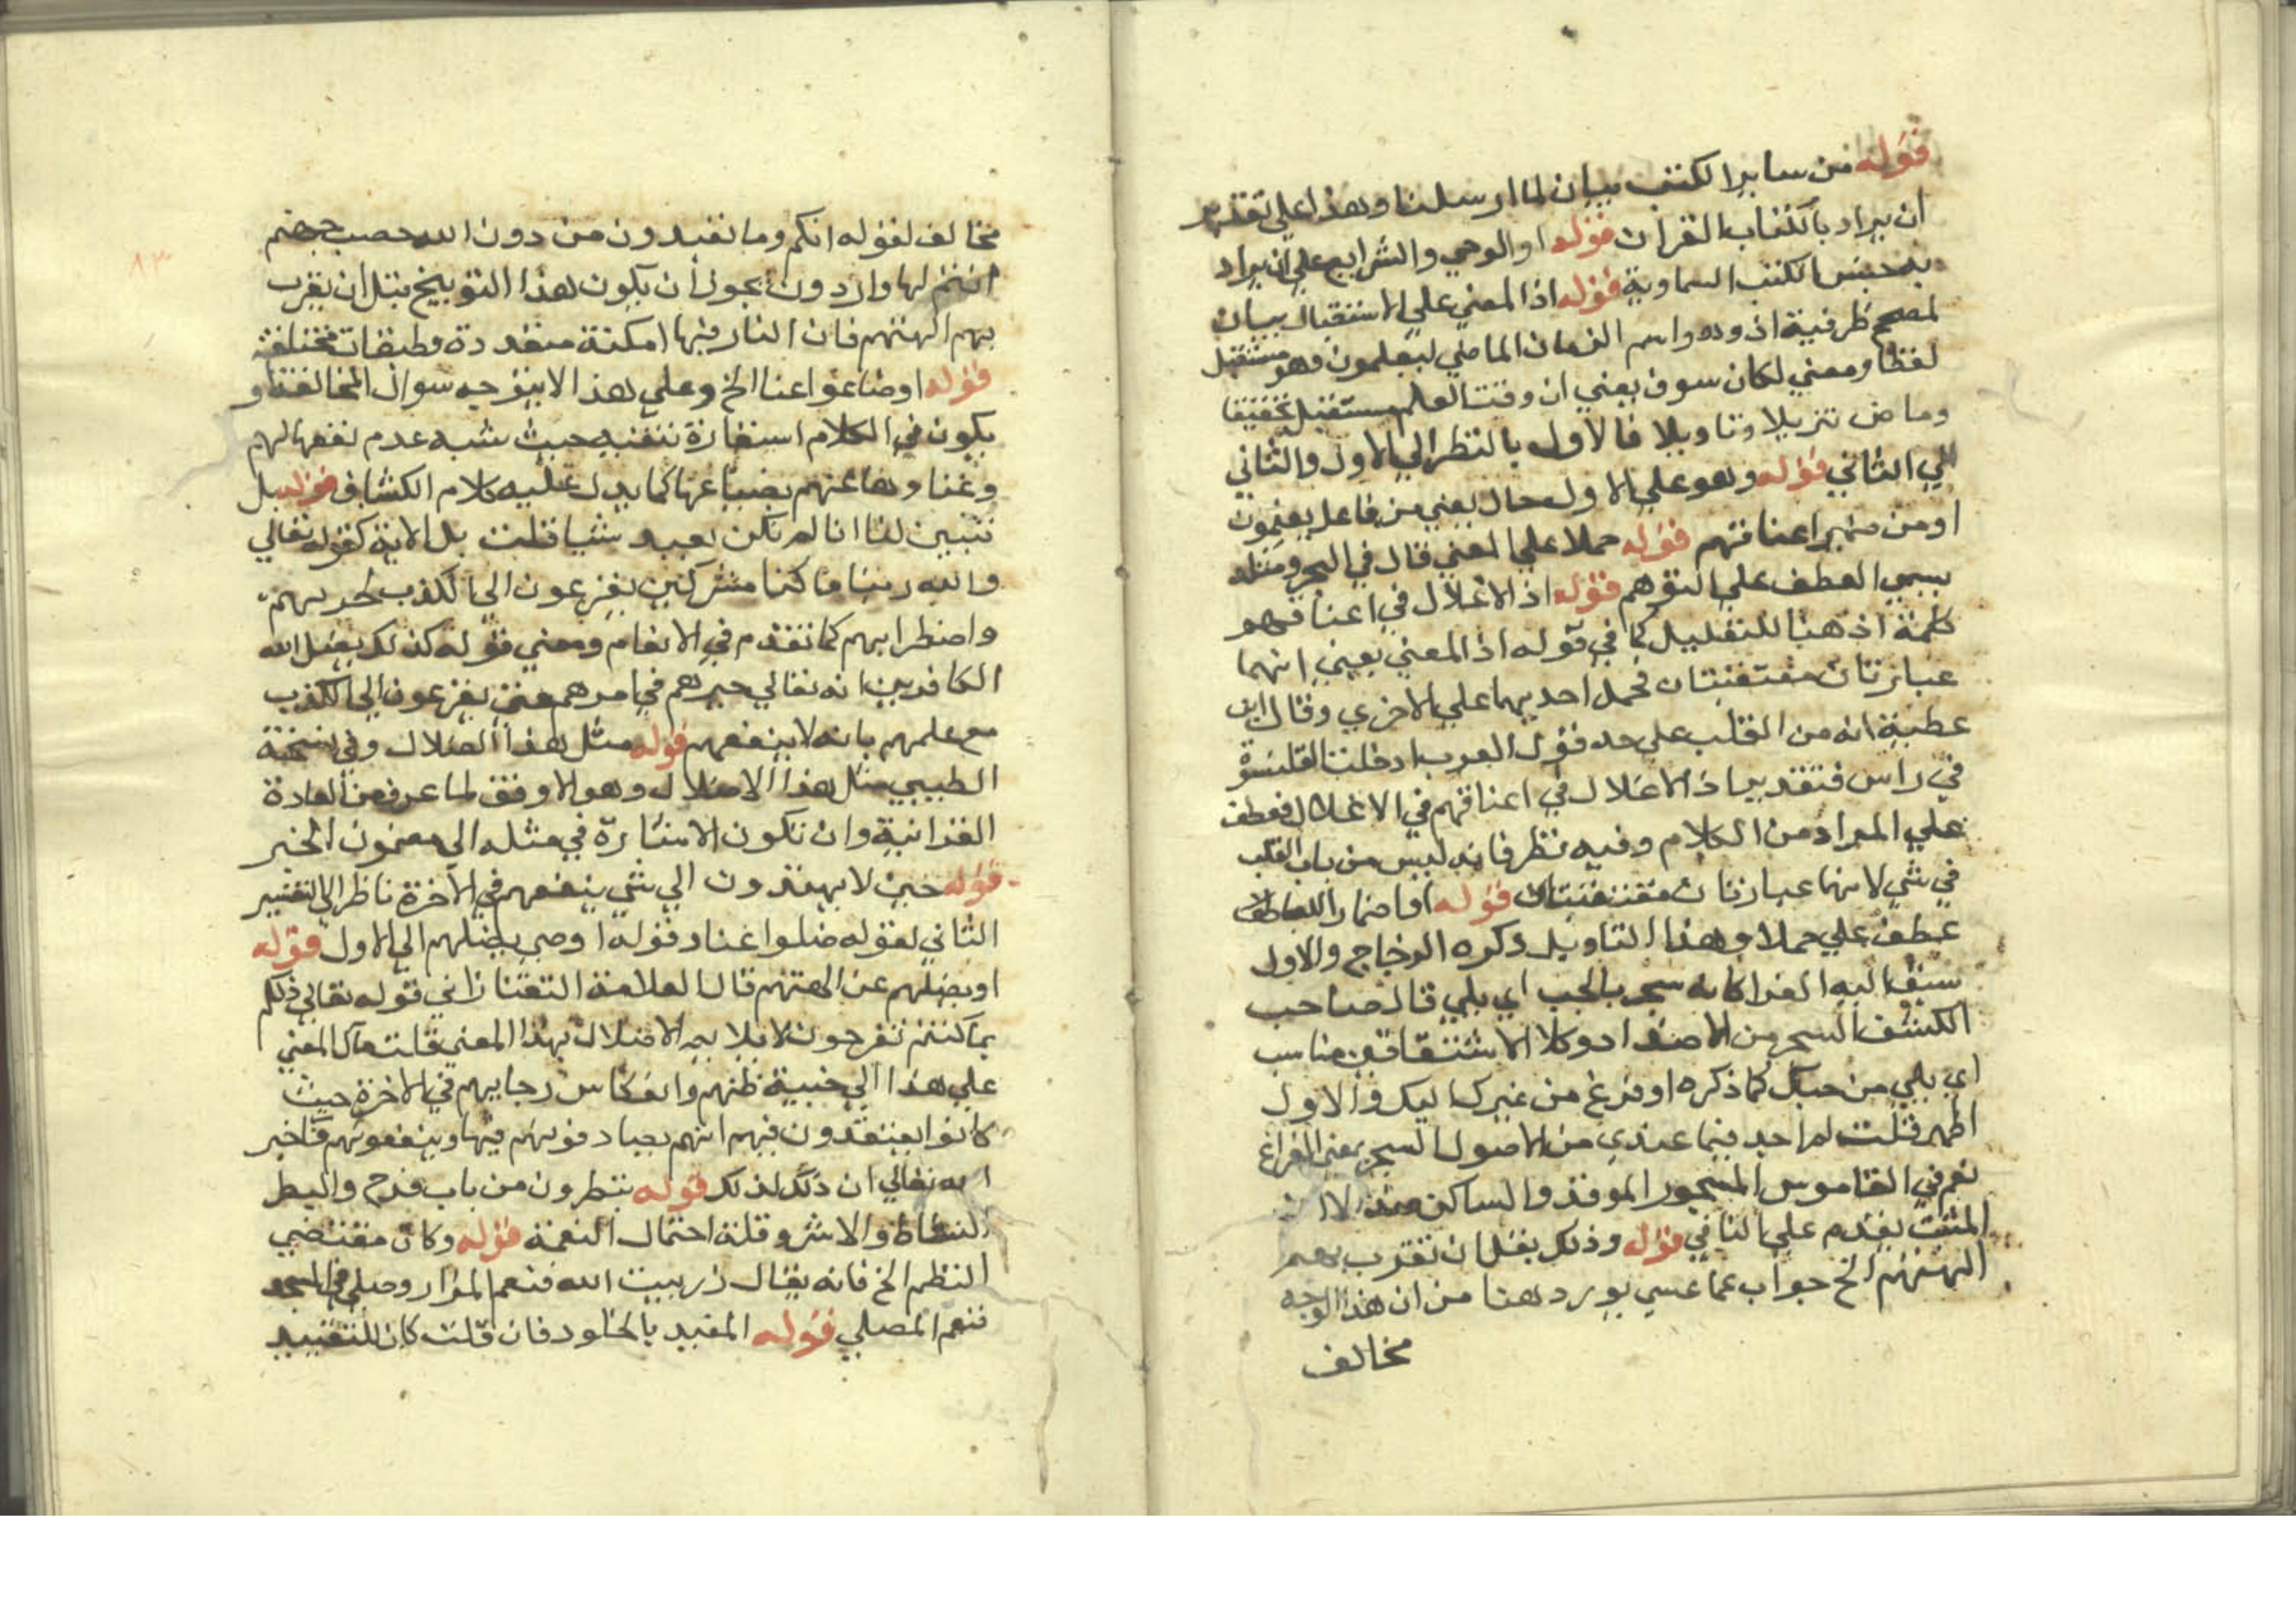 قوله من ساير الكتب بيان لما ارسلنا وهذا علي تقدير
ان يراد بالكتاب القران قوله او الوحي والشرايع علي ان يراد
به جنس الكتب السماوية قوله اذ المعني علي الاستقبال بيان
لمصحح ظرفية اذ وهو اسم الزمان الماضي ليعلمون وهو مستقبل
لفظا ومعني لكان سوف يعني ان وقت العلم مستقبل تحقيقا
وماض تنزيلا وتاويلا فالاول بالنظر الي الاول والثاني
الي الثاني قوله وهو علي الاول حال يعني من فاعل يعلمون
او من ضمير اعناقهم قوله حملا علي المعني قال في البحر ومثله
يسمي العطف علي التوهم قوله اذ الاغلال في اعناقهم
كلمة اذ هنا للتعليل كما في قوله اذ المعني يعني انهما
عبارتان معتقبتان فحمل احديهما علي الاخري وقال ابن
عطية انه من القلب علي حد قول العرب ادخلت القلنسوة
في راس فتقدير اذ الاغلال في اعناقهم في الاغلال فعطف
علي المراد من الكلام وفيه نظر فانه ليس من باب القلب
في شي لانهما عبارتان معتقبتان قوله او اضمار اللباء
عطف علي حملا وهذا التاويل ذكره الزجاج والاول
سبق اليه الفرا كانه سجر بالحب اي يلي قال صاحب
الكشف السجر من الاضداد وكلا الاشتقاقين مناسب
اي يلي من حبك كما ذكره او فرغ من غيرك اليك والاول
اظهر قلت لم اجد فيما عندي من الاصول السجر بمعني الفراغ
نعم في القاموس المسجور الموقد والساكن ضد
المثبت يقدم علي النافي قوله وذلك بقل ان تقرب بهم
الهتهم الخ جواب عما عسي يورد هنا من ان هذا الوجه
مخالف
٨٣
مخالف لقوله انكم وما تعبدون من دون الله حصب جهنم
انتم لها واردون يجوز أن يكون هذا التوبيخ قبل ان يقرب
بهم الهتهم فان النار فيها امكنة متعددة وطبقات مختلفة
قوله او ضاعوا عنا الخ وعلي هذا لا يتوجه سوال المخالفة و
يكون في الكلام استعارة تبعية حيث شبه عدم نفعها لهم
وغناوها عنهم بضياعها كما يدل عليه كلام الكشاف قوله بل
تبين لنا انا لم نكن نعبد شيا قلت بل الاية كقوله تعالي
والله ربنا ما كنا مشركين يفزعون الي الكذب لحيرتهم
واضطرابهم كما تقدم في الانعام ومعني قوله كذلك يضل الله
الكافرين انه تعالي حيرهم في امرهم حتي يفزعون الي الكذب
مع علمهم بانه لا ينفعهم قوله مثل هذا الضلال وفي نسخة
الطيبي مثل هذا الاضلال وهو الاوفق لما عرف من العادة
القرانية وان تكون الاشارة في مثله الي مضمون الخبر
قوله حتي لا يهتدون الي شي ينفعهم في الاخرة ناظر الي التفسير
الثاني لقوله ضلوا عنا وقوله او صي يضلهم الي الاول قوله
او يضلهم عن الهتهم قال العلامة التفتازاني قوله تعالي ذلكم
بما كنتم تفرحون لا يلايم الاضلال بهذا المعني قلت مآل المعني
علي هذا الي خيبة ظنهم وانعكاس رجايهم في الاخرة حيث
كانوا يعتقدون فيهم انهم يصادفونهم فيها وينفعونهم فاخبر
الله تعالي ان ذلك لذلك قوله بتطرون من باب فرح والبطر
النشاط والاشر وقلة احتمال النعمة قوله وكان مقتضي
النظم الخ فانه يقال زر بيت الله فنعم المزار وصلي في المسجد
فنعم المصلي قوله المقيد بالخلود فان قلت كان للتقييد